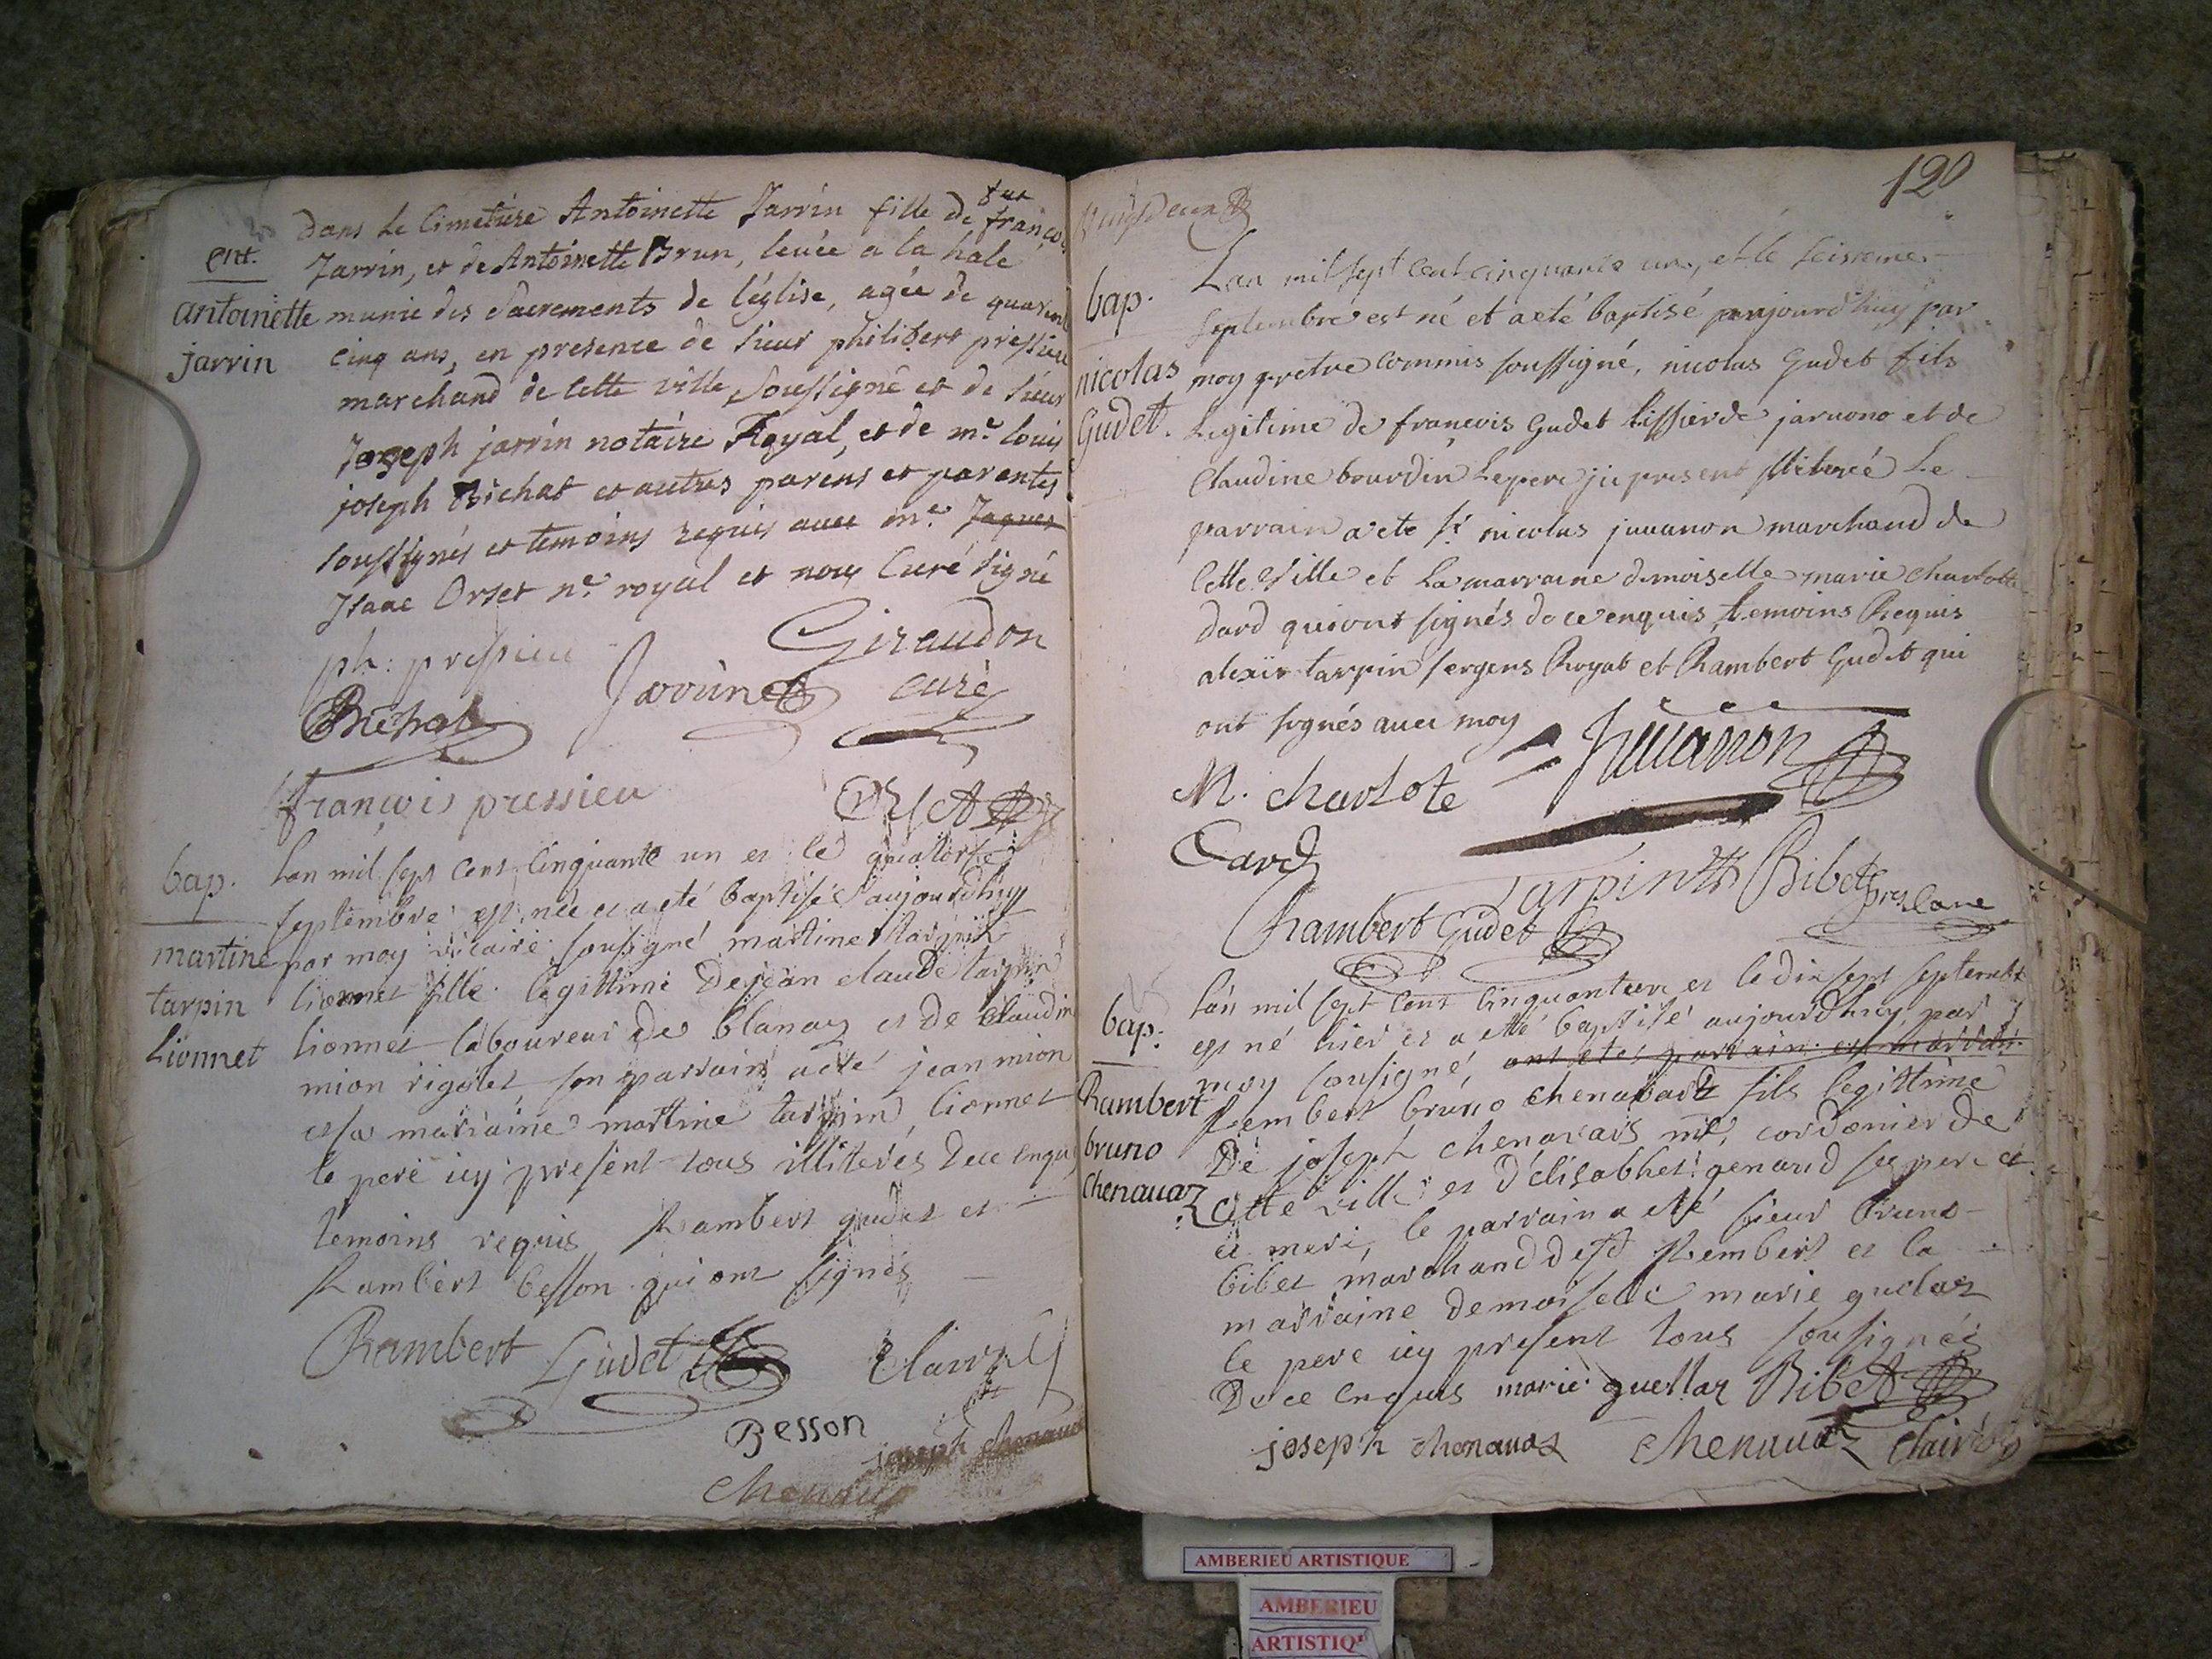 dans le Cimetiere Antoinette Jarrin fille de françois
ent.
Jarrin, et de Antoinette Brun, levée a la hale
antoinette
munie des Sacrements de l'église, agée de quarente
jarrin
cinq ans, en presence de sieur philibert pressieu
marchand de cette ville soussigné et de sieur
Joseph jarrin notaire Royal, et de me louis
joseph Bichat et autres parens et parentes
soussignés et temoins requis avec me Jaques
Isaac Orset ne royal et nous Curé signé
ph: pressieu
Giraudon
Bichat
curé
françois pressieu
Orset
bap.
Lan mil sept cent cinquante un et le quatorse
septembre est née et a eté baptisée aujourdhuy
martine
par moy vicaire sousigné martine tarpin
tarpin
lionnet fille legittime de jean claude tarpin
Lionnet
lionnet laboureur de blanaz et de claudine
mion rigolet, son parrain a eté jean mion
et sa marraine martine tarpin lionnet
le pere icy present tous illiterés de ce enquis
temoins requis Rambert gudet et
Rambert besson qui ont signés
Rambert Gudet
Besson
joseph chenauaz
120
bap.
Lan mil sept cent cinquante un, et le seisieme
septembre est né et a eté baptisé aujourd'huy par
nicolas
moy pretre commis soussigné, nicolas Gudet fils
Gudet.
Legitime de françois Gudet tissier de jaruono et de
Claudine bourdin Le pere ji present illiteré Le
parrain a eté sr nicolas juuanon marchand de
Cette Ville et La marraine demoiselle marie charlotte
dard qui ont signés de ce enquis temoins Requis
alexis tarpin sergens Royal et Rambert Gudet qui
ont signés avec moy
Juuanon
M. charlote
Dard
Tarpin Bibet
Rambert Gudet
bap.
lan mil sept cent cinquante un et le dix sept septembre
est né hier et a eté baptisé aujourdhuy par
moy sousigné, ont eté parrain et marraine
Rambert
Rembert bruno chenavaz fils legittime
bruno
De joseph chenavas me cordonier de
Chenauaz
Cette ville et d'elisabhet genaud ses pere et
et mere, le parrain a eté sieur bruno
bibet marchand de st Rembert et la
marraine demoiselle marie guellaz
le pere icy present tous sousignés
De ce enquis marie guellaz Bibet
joseph chenauaz chenauaz
AMBERIEU ARTISTIQUE
AMBERIEU
ARTISTIQ